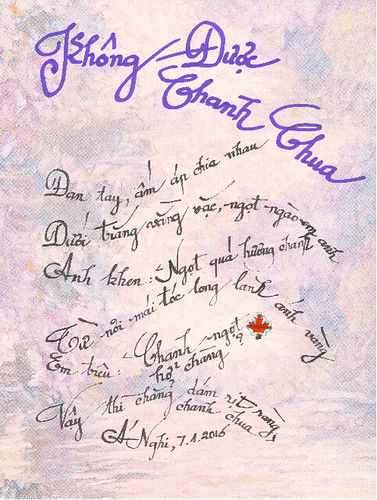 Không Được
Chanh Chua
Đan tay, ấm áp chia nhau
Dưới trăng vằng vặc, ngọt ngào em anh
Anh khen: "Ngọt quá hương chanh
Từ nơi mái tóc long lanh ánh vàng
Em trêu: "Chanh ngọt
hở chàng?
Vậy thì chẳng dám rịt ràng,
chanh chua
Á Nghi, 7.4.2016